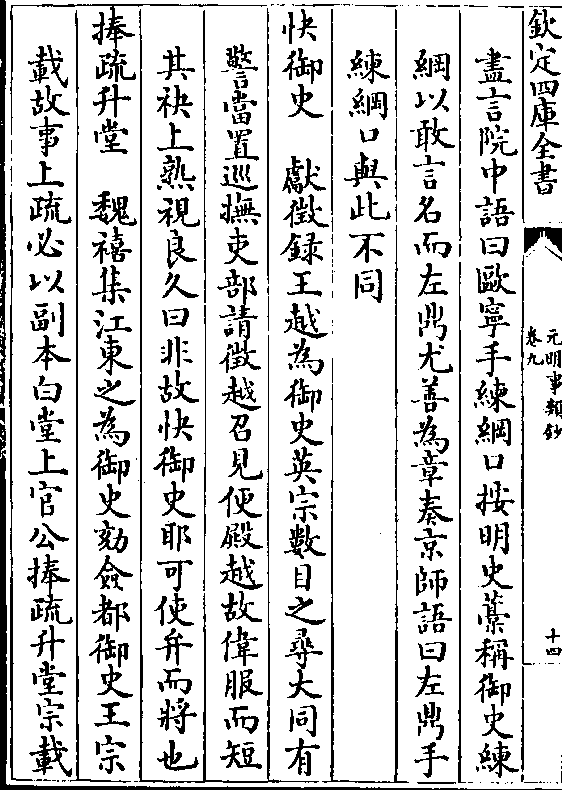 欽定四庫全書
元明事類鈔
卷九
十四
盡言院中語曰歐寧手練綱口按明史藁稱御史練
綱以敢言名而左鼎尤善為章奏京師語曰左鼎手
練綱口與此不同
快御史　獻徵録王越為御史英宗數目之尋大同有
警當置巡撫吏部請徴越召見便殿越故偉服而短
其袂上熟視良久曰非故快御史耶可使弁而將也
捧疏升堂　魏禧集江東之為御史劾僉都御史王宗
載故事上疏必以副本白堂上官公捧疏升堂宗載